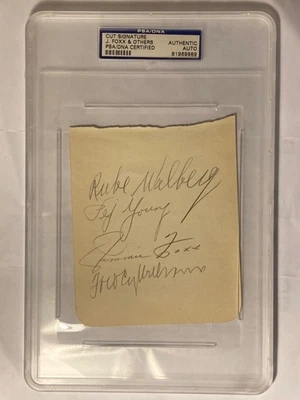 PSA/DNA
CUT SIGNATURE
J. FOXX & OTHERS
PSA/DNA CERTIFIED
AUTHENTIC
AUTO
Rube Walberg
Pep Young
Jimmie Foxx